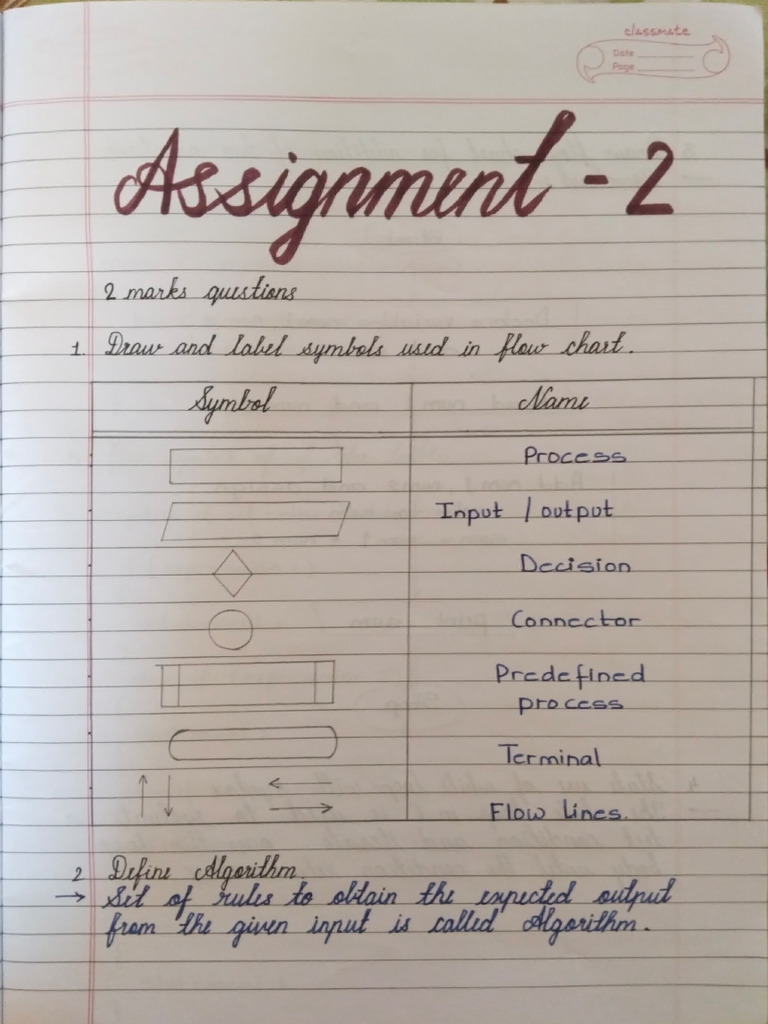 classmate
Date
Page
Assignment - 2
2 marks questions
1. Draw and label symbols used in flow chart.
Symbol Name
Process
Input / output
Decision
Connector
Predefined
process
Terminal
Flow lines.
2 Define Algorithm.
→ Set of rules to obtain the expected output
from the given input is called Algorithm.